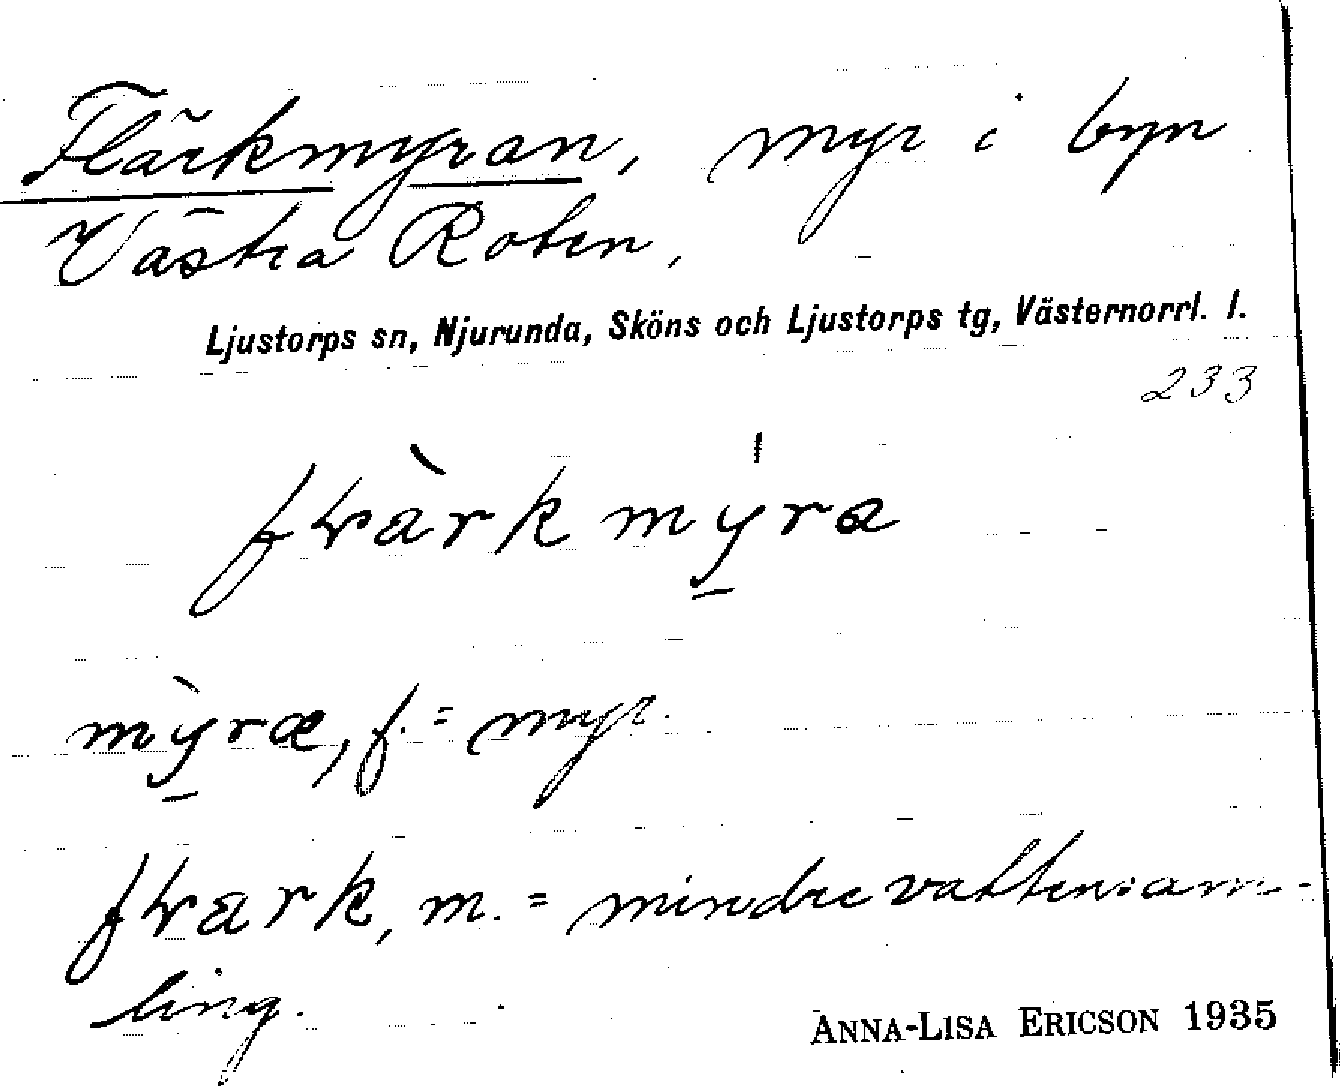 Flärkmyran, myr i byn
Västra Roten,
Ljustorps sn, Njurunda, Sköns och Ljustorps tg, Västernorrl. l.
233
myræ, f. = myr.
m. = mindre vattensam-
ling.
ANNA-LISA ERICSON 1935